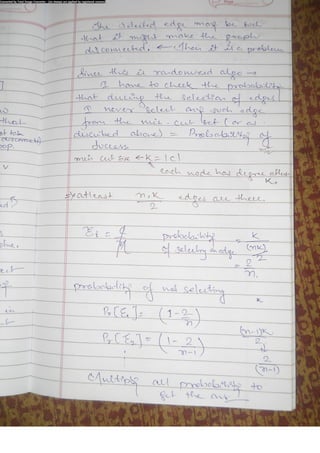 The selected edge may be such
that it might make the graph
disconnected. ← Then it is a problem
Since this is randomised algo →
I have to check the probability
that during the selection of edges
I never select any such edge
from the min-cut set (or as
discribed above) = Probability of
success
min cut size ← k = |c|
each node has degree atleast k.
so atleast n.k/2 edges are there.
probability of selecting an edge = k/(nk)/2
= 2/n.
probability of not selecting
Pr[ε1] = (1 - 2/n)
Pr[ε2] = (1 - 2/n-1)
(n-1)k/2
2/(n-1)
Multiply all probability to
get the ans